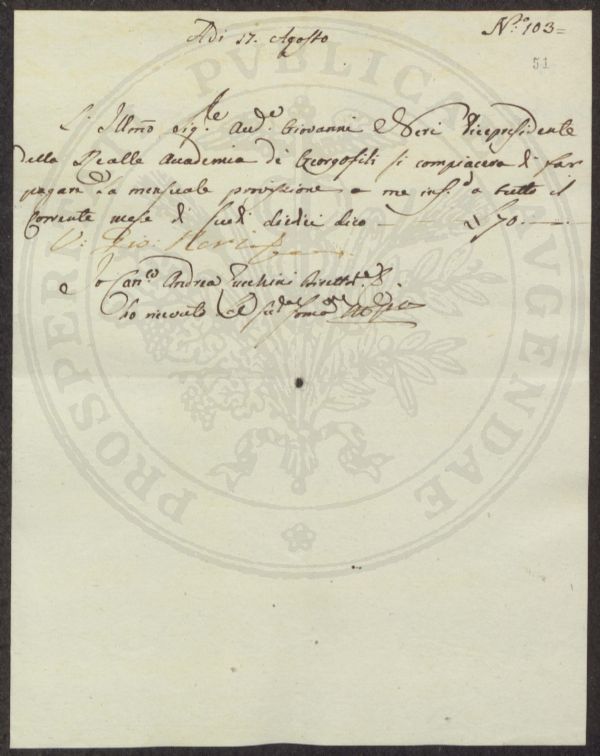 Adi 17. Agosto
N.o 103=
51
L'Illmo sig.re Aud.e Giovanni Neri Vicepresidente
della Reale Accademia de Georgofili si compiacerà di far
pagare la mensuale provisione a me inf.o a tutto il
Corrente mese di Scudi dieci dico 70
V: Gio: Neri
e Io Can.co Andrea Zucchini
ho ricevuto la sud.a somma
PROSPERITATI PVBLICAE AVGENDAE